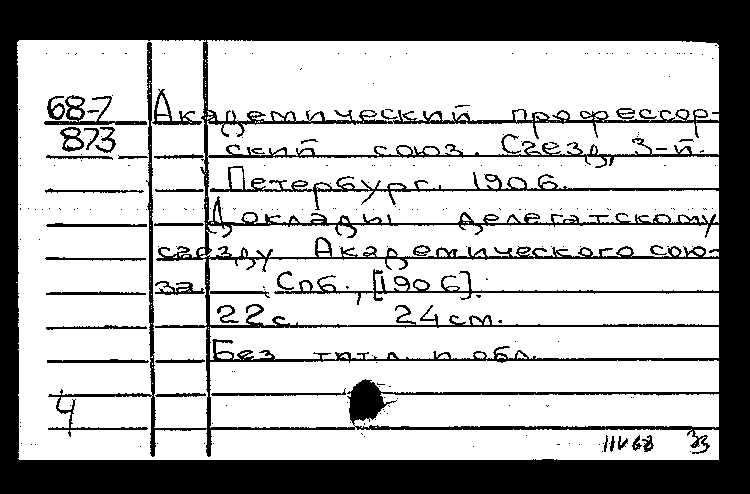 68-7 Академический профессор-
873 ский союз. Съезд, 3-й.
Петербург. 1906.
Доклады делегатскому
съезду Академического сою-
за. Спб., [1906].
22с. 24см.
Без тит.л. и обл.
4
IIV68 33